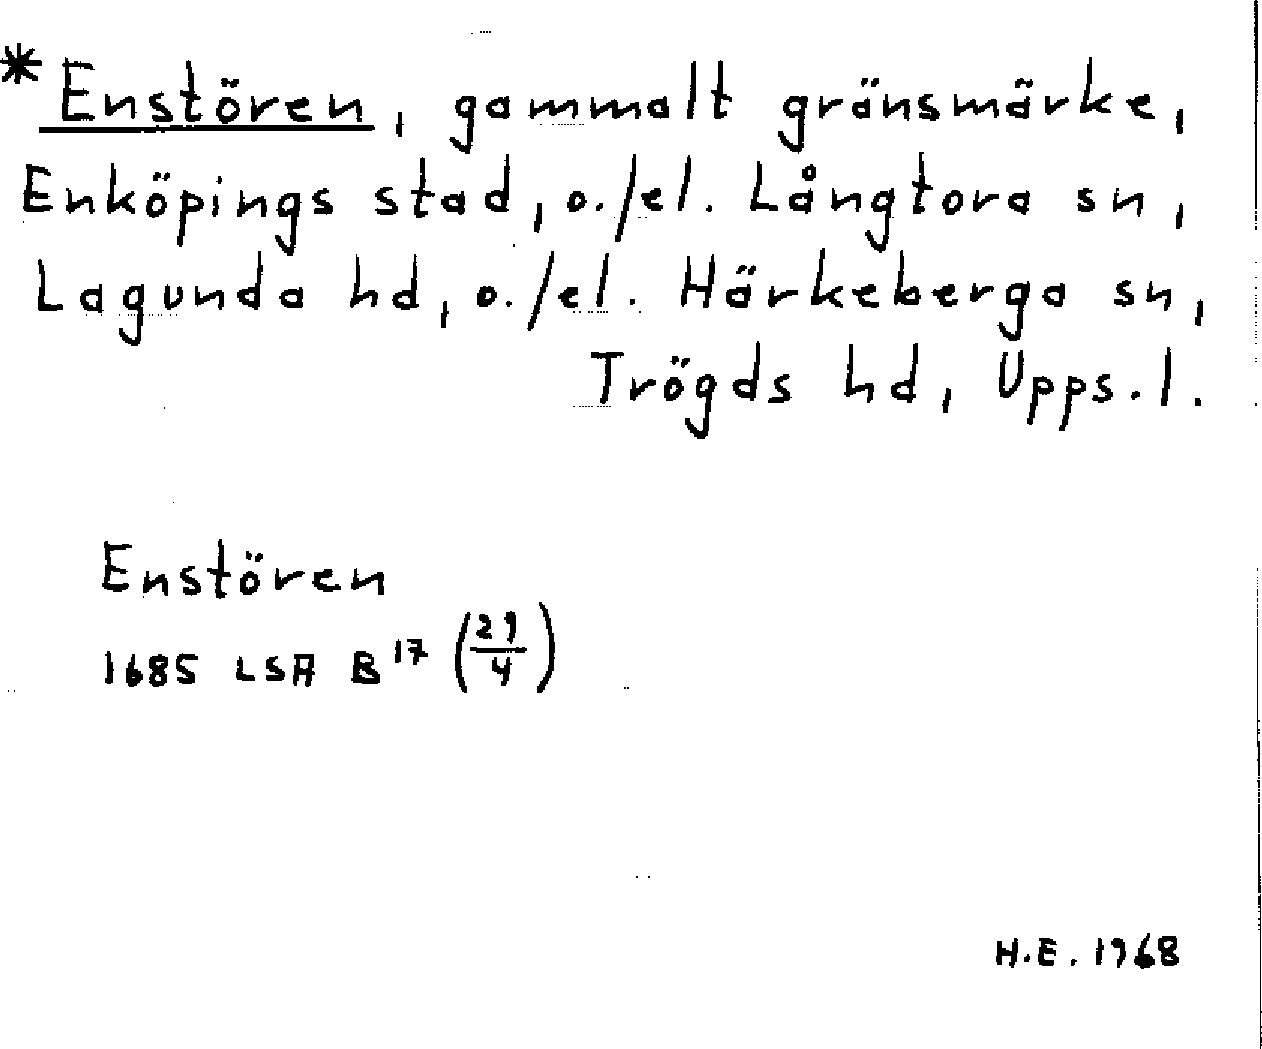 * Enstören, gammalt gränsmärke,
Enköpings stad, o./el. Långtora sn,
Lagunda hd, o./el. Härkeberga sn,
Trögds hd, Upps.l.
Enstören
1685 LSA B¹⁷ (29/4)
H.E. 1968